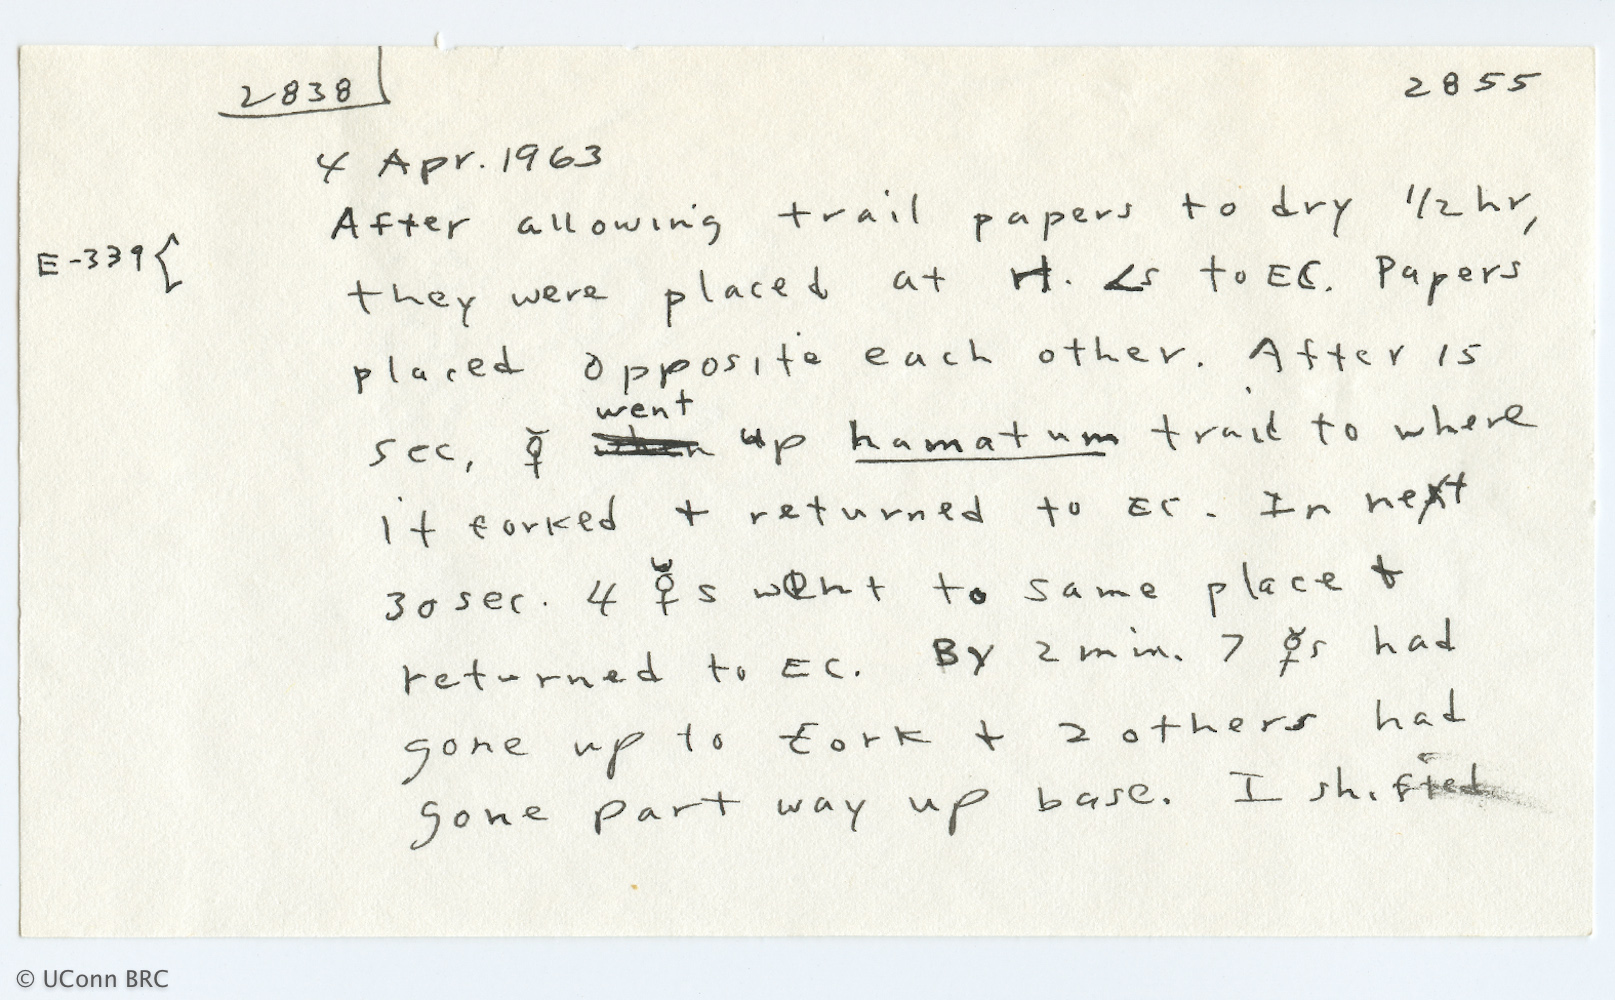 2838
2855
4 Apr. 1963
After allowing trail papers to dry 1/2 hr,
E-339 {
they were placed at rt. ∠s to EC. Papers
placed opposite each other. After 15
went
sec, ☿ up hamatum trail to where
it forked + returned to EC. In next
30 sec. 4 ☿s went to same place +
returned to EC. By 2 min. 7 ☿s had
gone up to fork + 2 others had
gone part way up base. I shifted
© UConn BRC